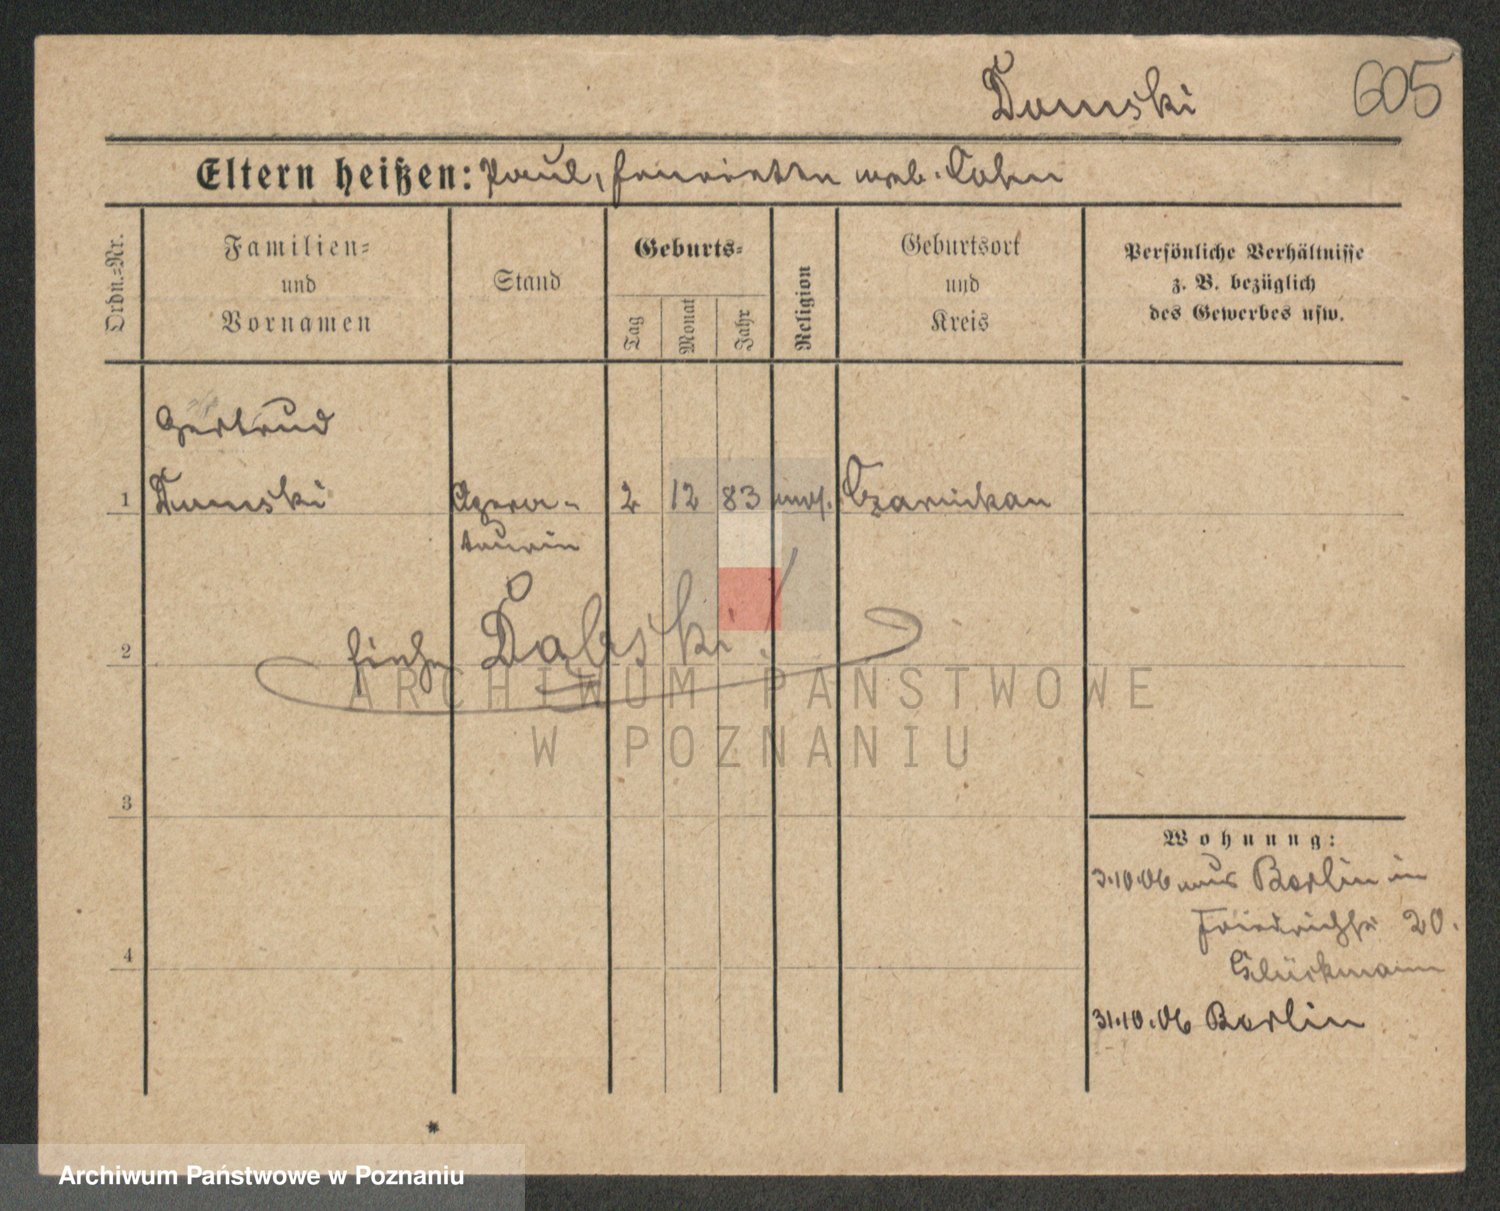 Domski
605
Eltern heißen: Paul, Henriette geb. Cohn
Ordn.-Nr.
Familien-
und
Vornamen
Stand
Geburts-
Tag
Monat
Jahr
Religion
Geburtsort
und
Kreis
Persönliche Verhältnisse
z. B. bezüglich
des Gewerbes usw.
Gertrud
1 Domski 2 12 83 mos. Czarnikau
siehe Dabski!
2
ARCHIWUM PAŃSTWOWE
W POZNANIU
3
Wohnung:
3.10.06 aus Berlin in
Friedrichstr 20.
Glückmann
4
31.10.06 Berlin
Archiwum Państwowe w Poznaniu